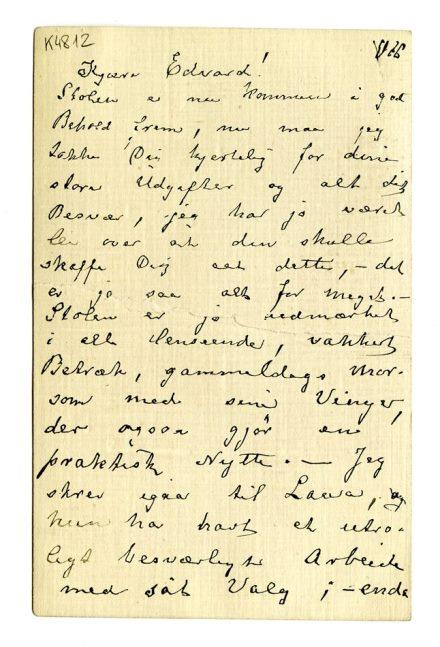 K4812
Kjære Edvard!
Stolen er nu kommen i god
Behold frem, nu maa jeg
takke Dig hjertelig for dine
store Udgifter og alt dit
Besvær, jeg har jo været
lei over at den skulle
skaffe Dig alt dette, – det
er jo saa alt for meget. –
Stolen er jo udmærket
i all Henseende, vakkert
Betræk, gammeldags mor-
som med sine Vinger,
der ogsaa gjør en
praktisk Nytte. – Jeg
skrev igaar til Laura, og
hun har havt et utro-
ligt besværligt Arbeide
med sit Valg ; – enda